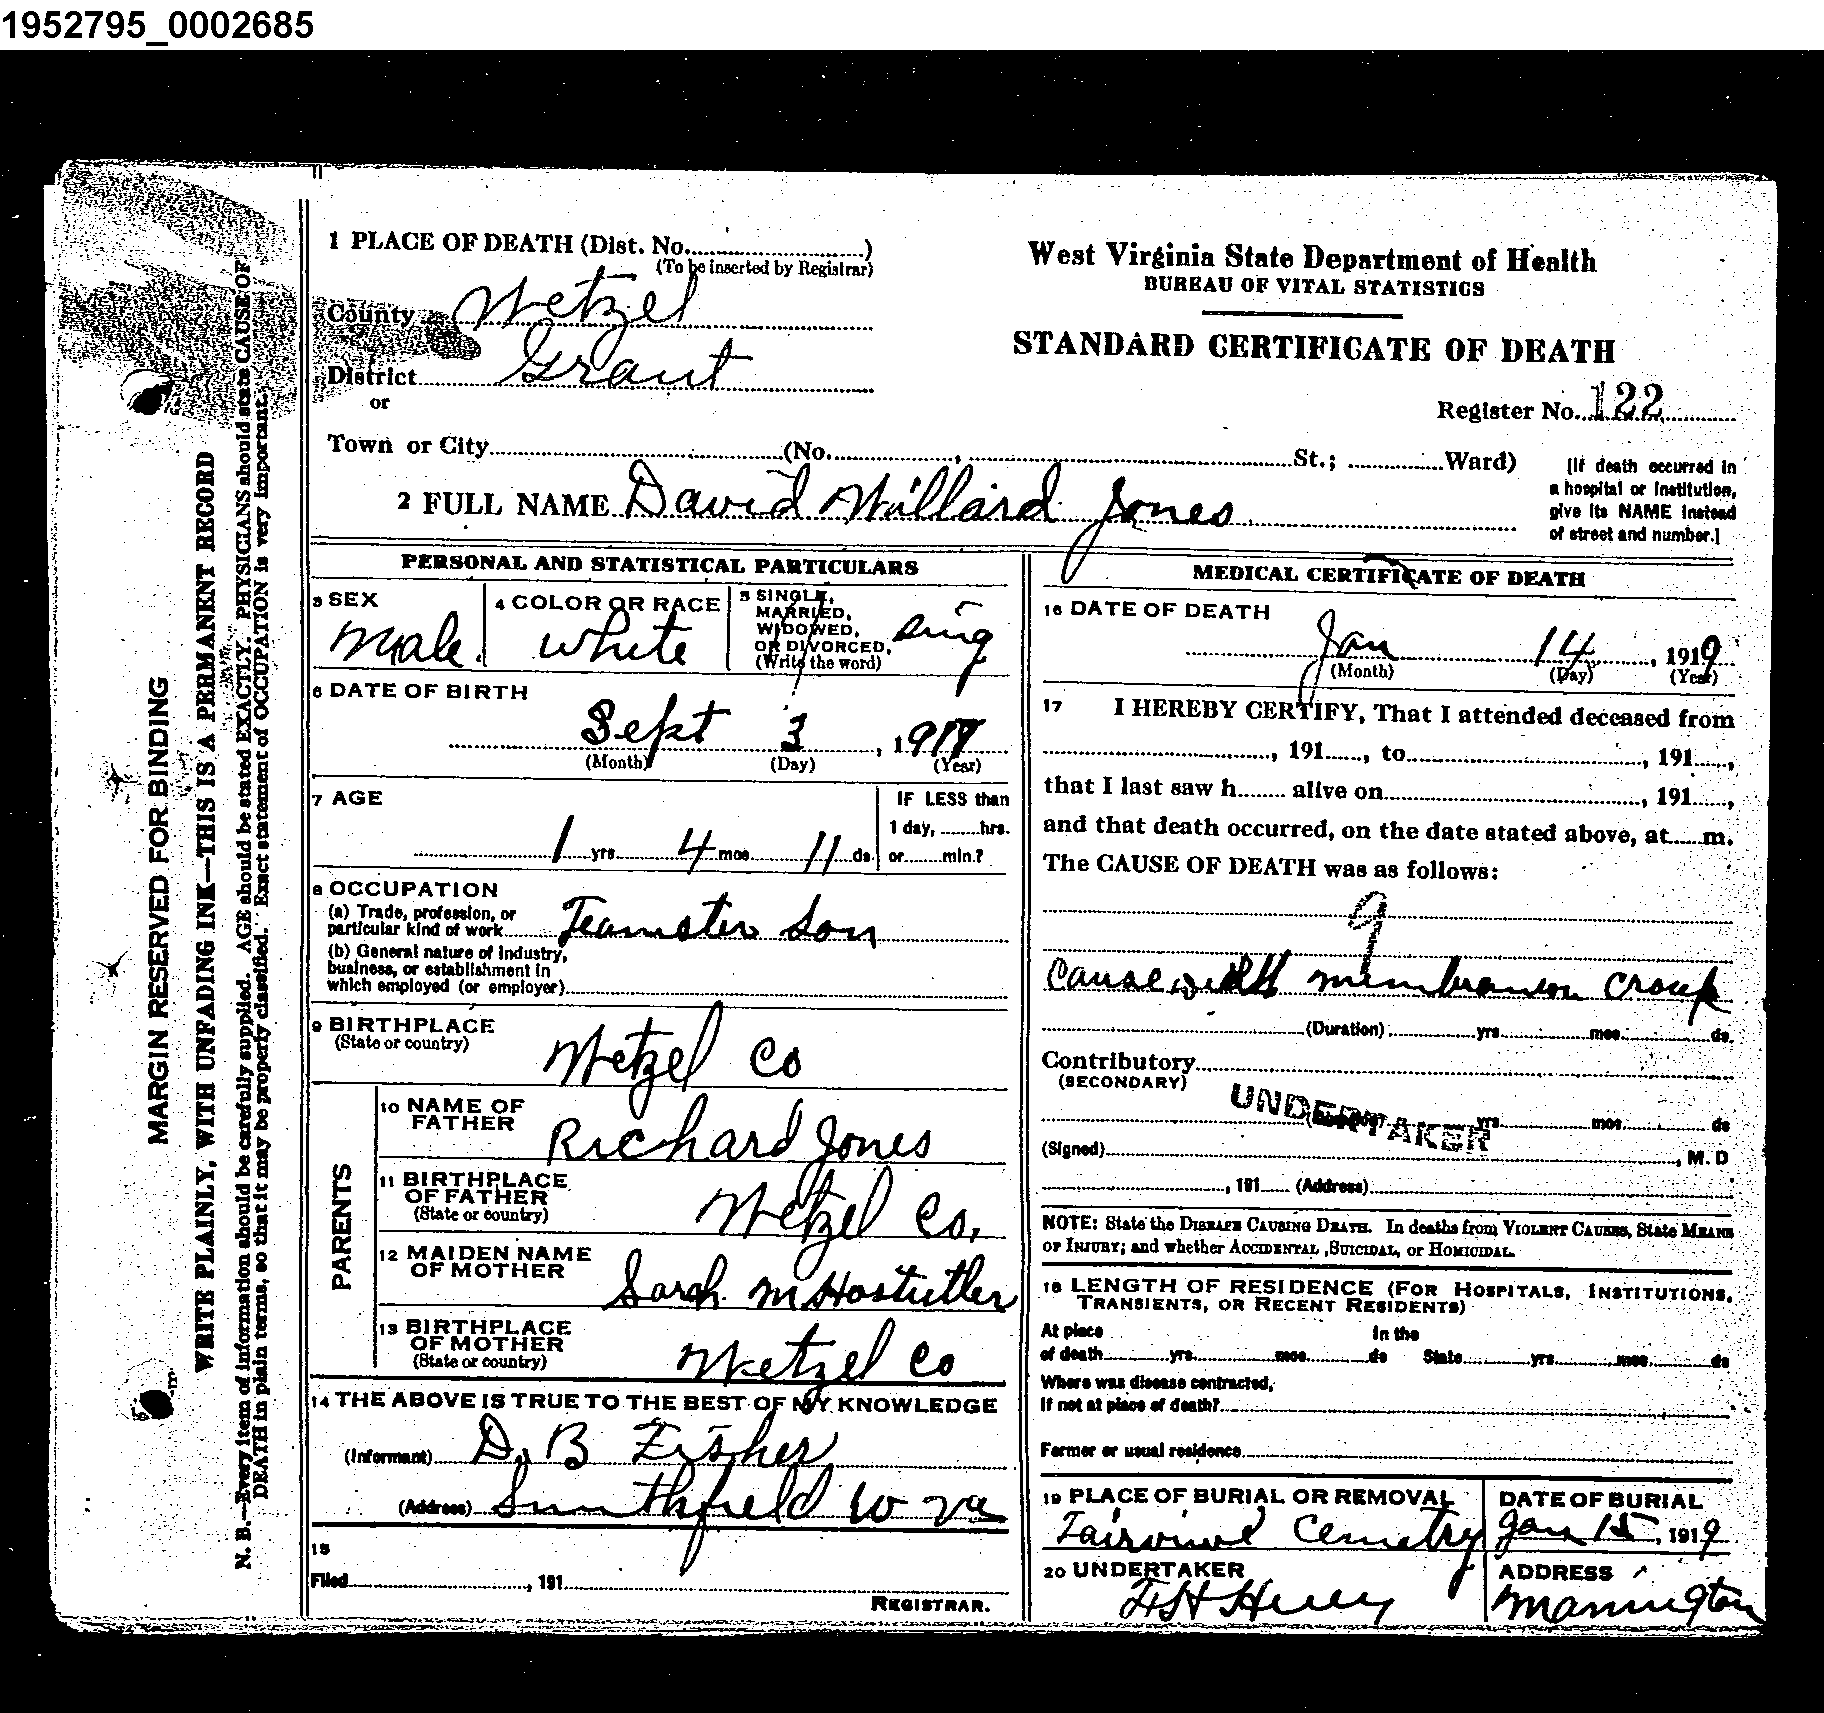 1952795_0002685
1 PLACE OF DEATH (Dist. No..........)
(To be inserted by Registrar)
County Wetzel
District Grant
or
Town or City..........(No.........., ..........St.; ..........Ward)
West Virginia State Department of Health
BUREAU OF VITAL STATISTICS
STANDARD CERTIFICATE OF DEATH
Register No. 122
[If death occurred in
a hospital or institution,
give its NAME instead
of street and number.]
2 FULL NAME David Willard Jones
MARGIN RESERVED FOR BINDING
WRITE PLAINLY, WITH UNFADING INK—THIS IS A PERMANENT RECORD
N. B.—Every item of information should be carefully supplied. AGE should be stated EXACTLY. PHYSICIANS should state CAUSE OF
DEATH in plain terms, so that it may be properly classified. Exact statement of OCCUPATION is very important.
PERSONAL AND STATISTICAL PARTICULARS
3 SEX
Male
4 COLOR OR RACE
White
5 SINGLE,
MARRIED,
WIDOWED,
OR DIVORCED,
(Write the word)
Sing
6 DATE OF BIRTH
Sept 3, 1917
(Month) (Day) (Year)
7 AGE
1 yrs. 4 mos. 11 ds.
IF LESS than
1 day, ......hrs.
or......min.?
8 OCCUPATION
(a) Trade, profession, or
particular kind of work Teamster Son
(b) General nature of industry,
business, or establishment in
which employed (or employer)..........
9 BIRTHPLACE
(State or country)
Wetzel Co
PARENTS
10 NAME OF
FATHER
Richard Jones
11 BIRTHPLACE
OF FATHER
(State or country)
Wetzel Co.
12 MAIDEN NAME
OF MOTHER
Sarah M Hostutler
13 BIRTHPLACE
OF MOTHER
(State or country)
Wetzel Co
14 THE ABOVE IS TRUE TO THE BEST OF MY KNOWLEDGE
(Informant) D. B Fisher
(Address) Smithfield W Va
15
Filed.........., 191......
REGISTRAR.
MEDICAL CERTIFICATE OF DEATH
16 DATE OF DEATH
Jan 14, 1919
(Month) (Day) (Year)
17 I HEREBY CERTIFY, That I attended deceased from
.........., 191....., to.........., 191.....,
that I last saw h........ alive on.........., 191.....,
and that death occurred, on the date stated above, at......m.
The CAUSE OF DEATH was as follows:
9
Cause membranous croup
..........(Duration)..........yrs..........mos..........ds.
Contributory..........
(SECONDARY)
UNDERTAKER
..........(Duration)..........yrs..........mos..........ds
(Signed).........., M. D
.........., 191...... (Address)..........
NOTE: State the DISEASE CAUSING DEATH. In deaths from VIOLENT CAUSES, State MEANS
OF INJURY; and whether ACCIDENTAL ,SUICIDAL, or HOMICIDAL.
18 LENGTH OF RESIDENCE (FOR HOSPITALS, INSTITUTIONS,
TRANSIENTS, OR RECENT RESIDENTS)
At place In the
of death..........yrs..........mos..........ds State..........yrs..........mos..........ds
Where was disease contracted,
If not at place of death?..........
Farmer or usual residence..........
19 PLACE OF BURIAL OR REMOVAL
Fairview Cemetry
DATE OF BURIAL
Jan 15, 1919
20 UNDERTAKER
ADDRESS
Mannington